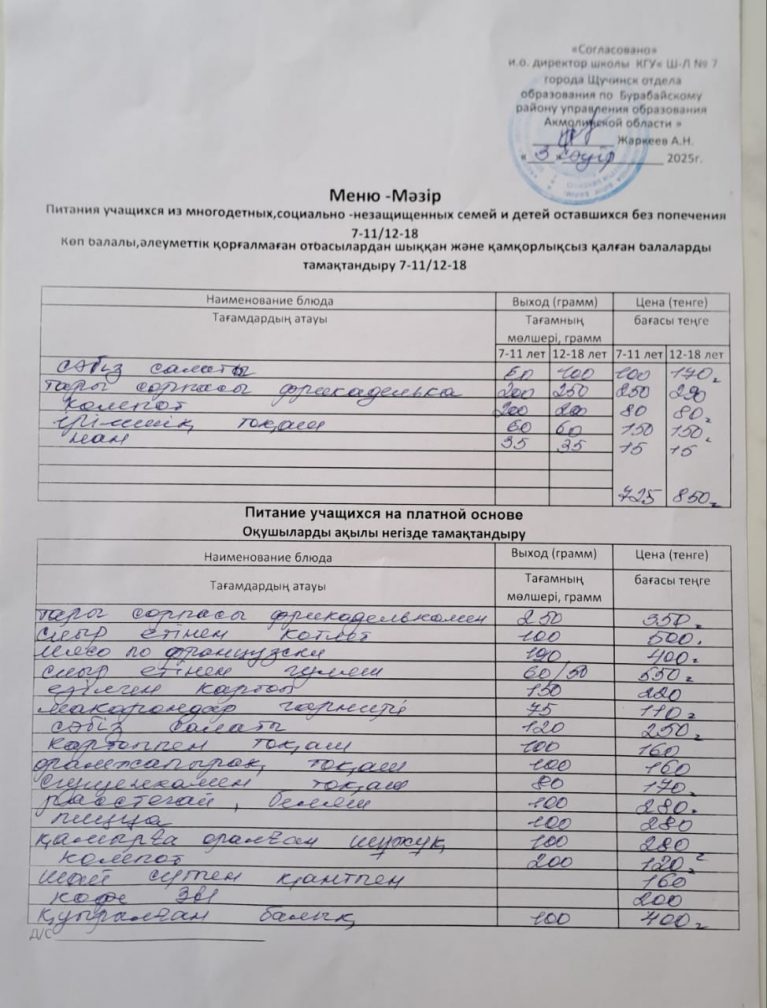 «Согласовано»
и.о. директор школы КГУ« Ш-Л № 7
города Щучинск отдела
образования по Бурабайскому
району управления образования
Акмолинской области »
Жаркеев А.Н.
« 3 сәуір 2025г.
Меню -Мәзір
Питания учащихся из многодетных,социально -незащищенных семей и детей оставшихся без попечения
7-11/12-18
Көп балалы,әлеуметтік қорғалмаған отбасылардан шыққан және қамқорлықсыз қалған балаларды
тамақтандыру 7-11/12-18
Наименование блюда Выход (грамм) Цена (тенге)
Тағамдардың атауы Тағамның мөлшері, грамм бағасы теңге
7-11 лет 12-18 лет 7-11 лет 12-18 лет
сәбіз салаты 60 100 100 170
тары сорпасы фрикаделька 200 250 250 290
компот 200 200 80 80
ірімшік тоқаш 60 60 150 150
нан 35 35 15 15
725 850
Питание учащихся на платной основе
Оқушыларды ақылы негізде тамақтандыру
Наименование блюда Выход (грамм) Цена (тенге)
Тағамдардың атауы Тағамның мөлшері, грамм бағасы теңге
тары сорпасы фрикаделькамен 250 350
сиыр етінен котлет 100 500
мясо по французски 100 400
сиыр етінен гуляш 60/50 550
езілген картоп 150 220
макарондар гарнирі 75 110
сәбіз салаты 120 250
картоппен тоқаш 100 160
тоқаш 100 160
сгущенкамен тоқаш 80 170
расстегай, беляш 100 280
пицца 100 280
қамырға оралған шұжық 100 280
компот 200 120
шай сүтпен қантпен 160
кофе 3в1 200
қуырылған балық 100 400
Д/С